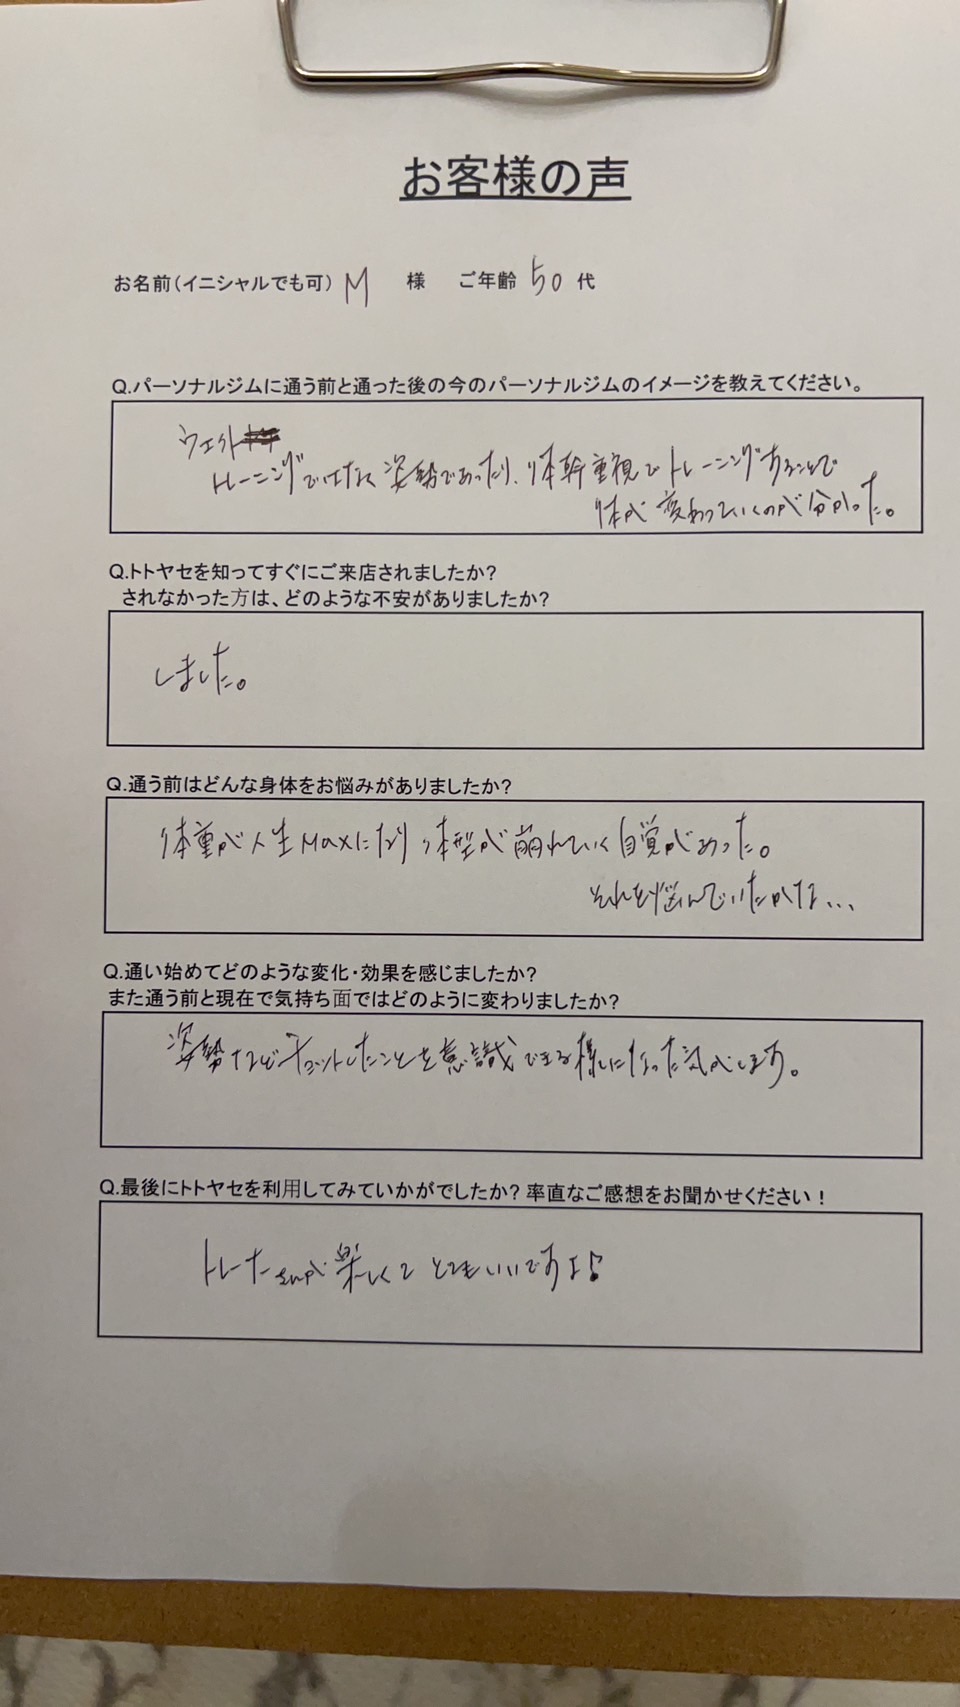 お客様の声
お名前(イニシャルでも可) M 様 ご年齢 50 代
Q.パーソナルジムに通う前と通った後の今のパーソナルジムのイメージを教えてください。
ウエイト
トレーニングではなく姿勢であったり、体幹重視でトレーニングすることで
体が変わっていくのが分かった。
Q.トトヤセを知ってすぐにご来店されましたか?
されなかった方は、どのような不安がありましたか?
しました。
Q.通う前はどんな身体をお悩みがありましたか?
体重が人生Maxになり体型が崩れていく自覚があった。
それを悩んでいたかな...
Q.通い始めてどのような変化・効果を感じましたか?
また通う前と現在で気持ち面ではどのように変わりましたか?
姿勢などチョットしたことを意識できる様になった気がします。
Q.最後にトトヤセを利用してみていかがでしたか? 率直なご感想をお聞かせください!
トレーナーさんが楽しくてとてもいいですよ♪